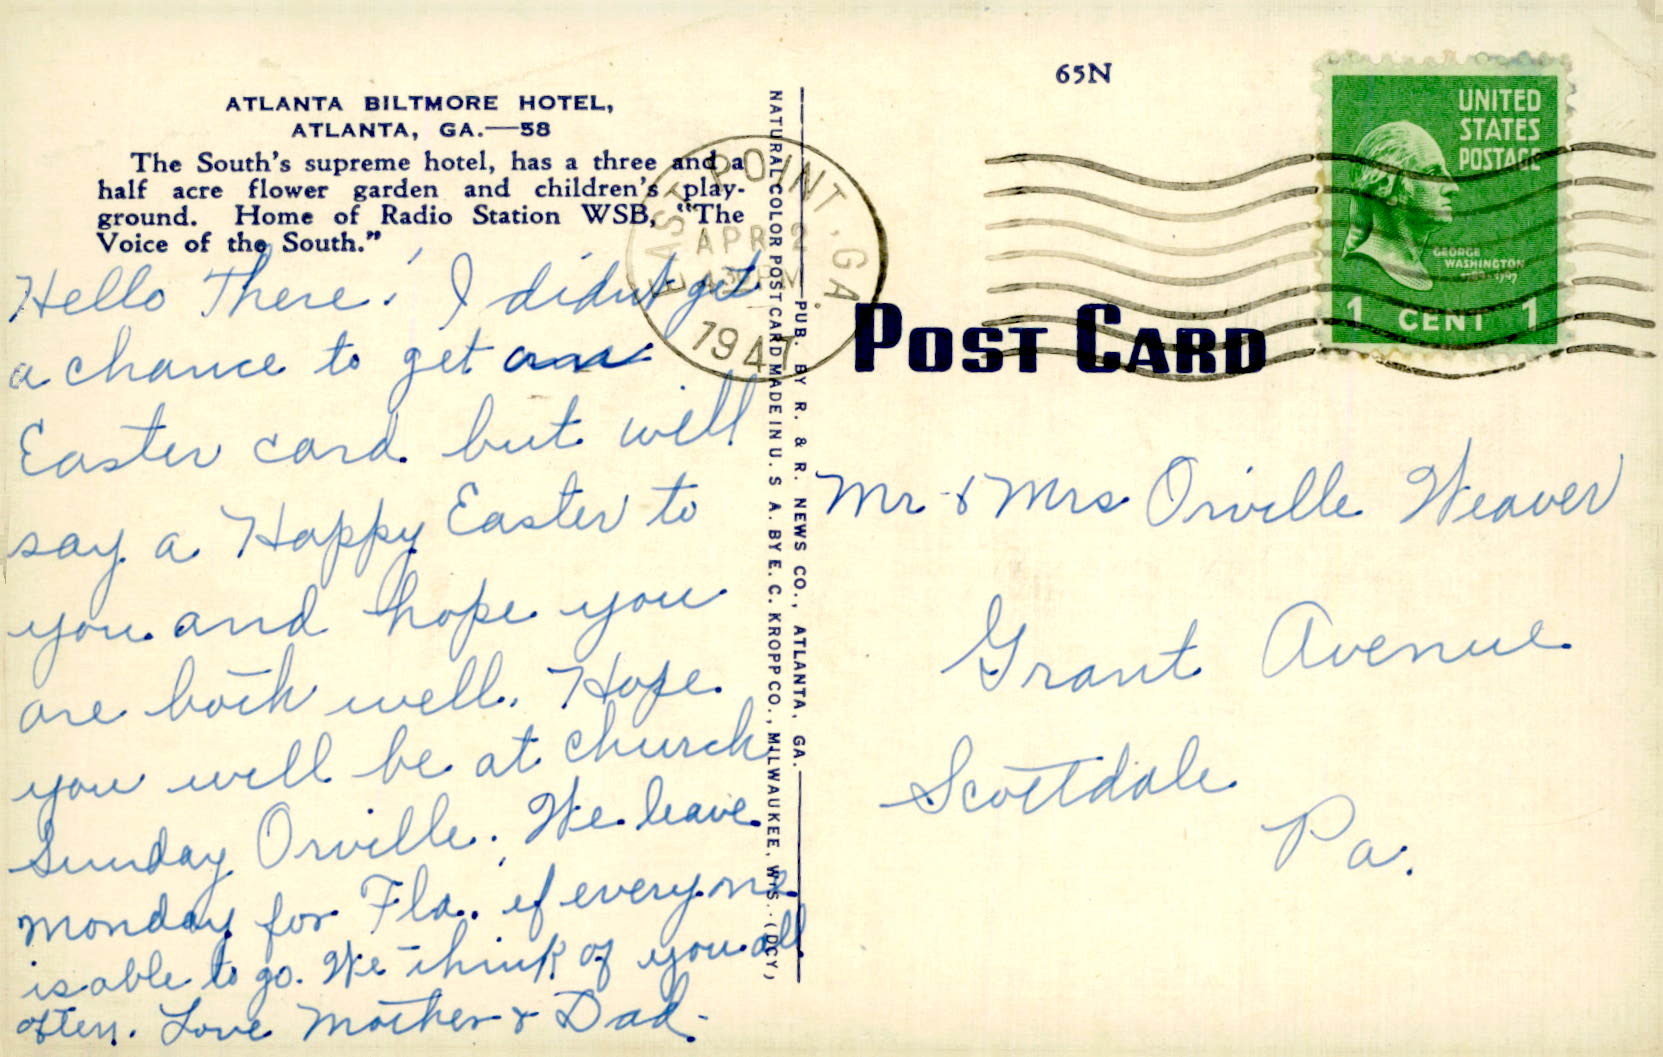 ATLANTA BILTMORE HOTEL,
ATLANTA, GA.—58
The South's supreme hotel, has a three and a
half acre flower garden and children's play-
ground. Home of Radio Station WSB, "The
Voice of the South."
Hello There! I didn't get
a chance to get an
Easter card but will
say a Happy Easter to
you and hope you
are both well. Hope
you will be at church
Sunday Orville. We leave
Monday for Fla. if everyone
is able to go. We think of you all
often. Love Mother & Dad.
NATURAL COLOR POST CARD MADE IN U. S. A. BY E. C. KROPP CO., MILWAUKEE, WIS. (DCY)
PUB. BY R. & R. NEWS CO., ATLANTA, GA.
EAST POINT, GA.
APR 2
PM
1947
65N
UNITED
STATES
POSTAGE
GEORGE
WASHINGTON
1 CENT 1
POST CARD
Mr & Mrs Orville Weaver
Grant Avenue
Scottdale
Pa.